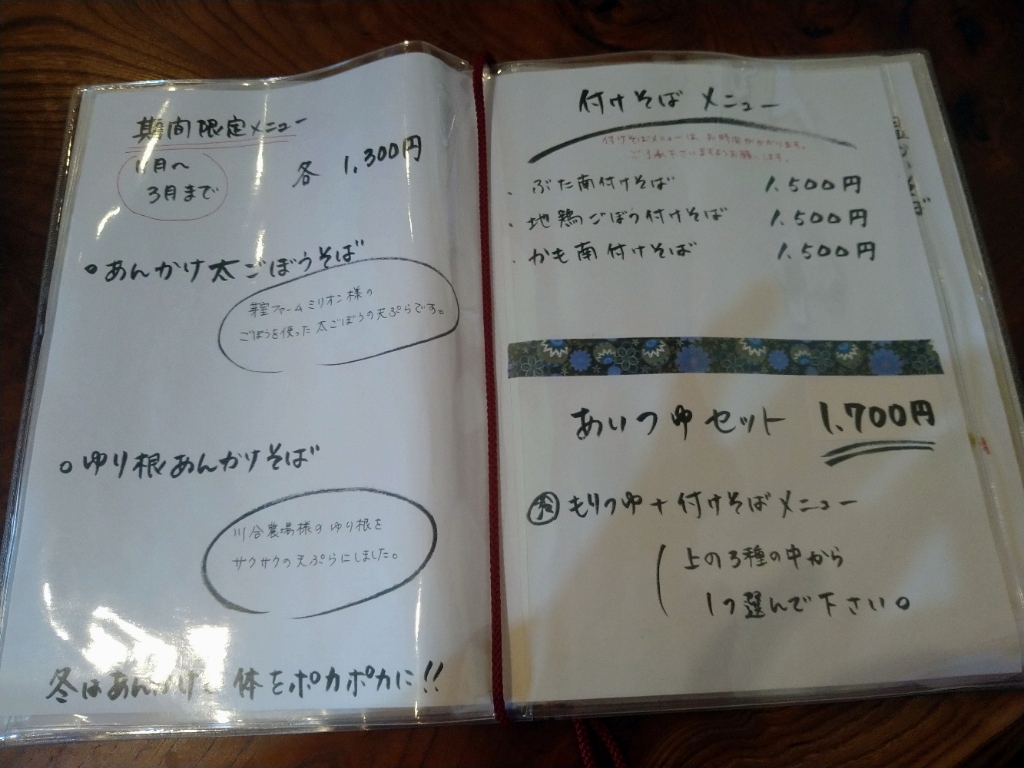 期間限定メニュー
11月〜
3月まで
各 1.300円
。あんかけ太ごぼうそば
ファームミリオン様の
ごぼうを使った太ごぼうの天ぷらです。
。ゆり根あんかけそば
川合農場様のゆり根を
サクサクの天ぷらにしました。
冬はあんかけで体をポカポカに!!
付けそば メニュー
付けそばメニューは、お時間がかかります。
ご了承下さいますようお願いします。
・ぶた南付けそば 1.500円
・地鶏ごぼう付けそば 1.500円
・かも南付けそば 1.500円
あいつゆセット 1.700円
もりつゆ+付けそばメニュー
上の3種の中から
1つ選んで下さい。